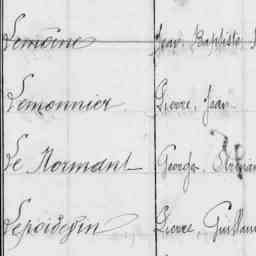 Lemoine Jean, Baptiste
Lemonnier Pierre, Jean
Le Normant Georges, Adrien
Lepoidevin Pierre, Guillaume